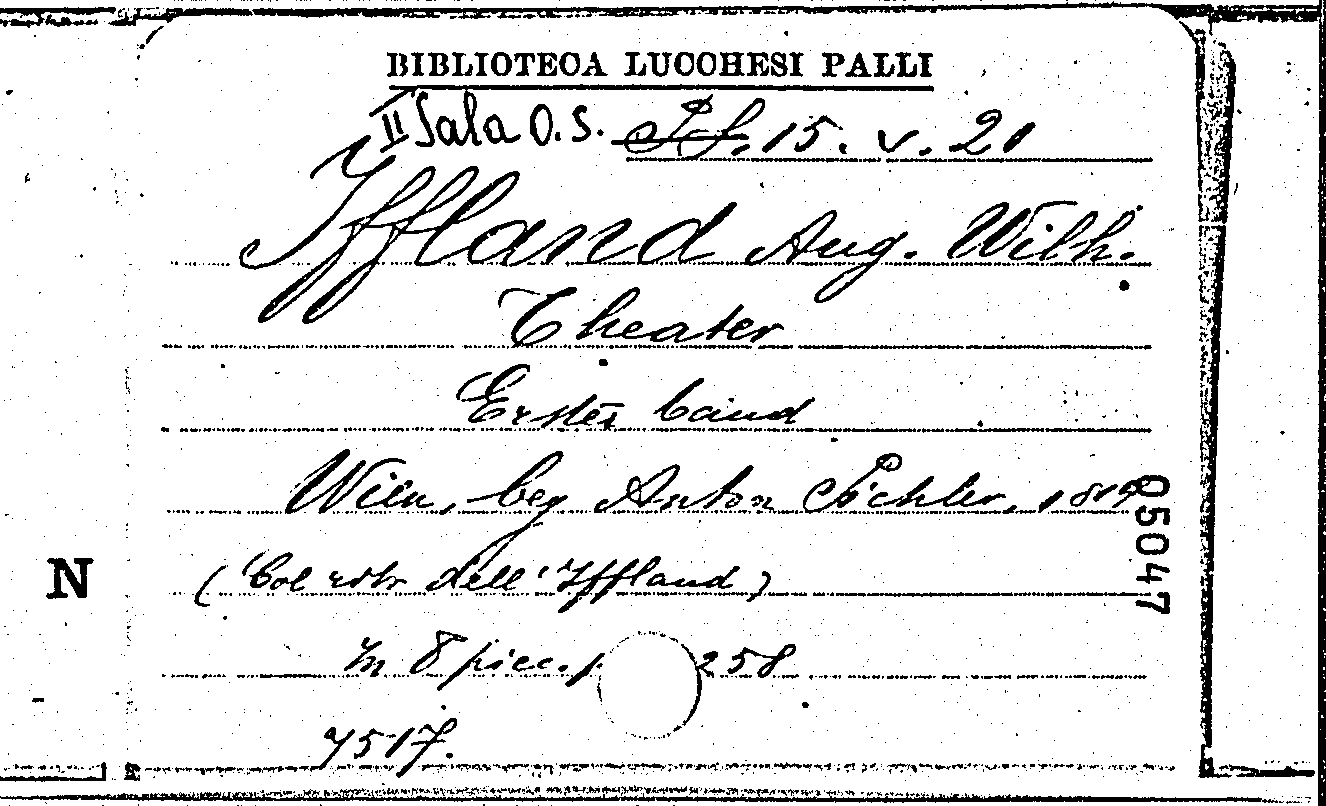 BIBLIOTECA LUCCHESI PALLI
II Sala O.S. 15. v. 21
Iffland Aug. Wilh.
Theater
Erstes band
Wien, bey Anton Pichler, 1819
(Col ritr. dell' Iffland)
In 8 picc. p 258
7517.
N
05047